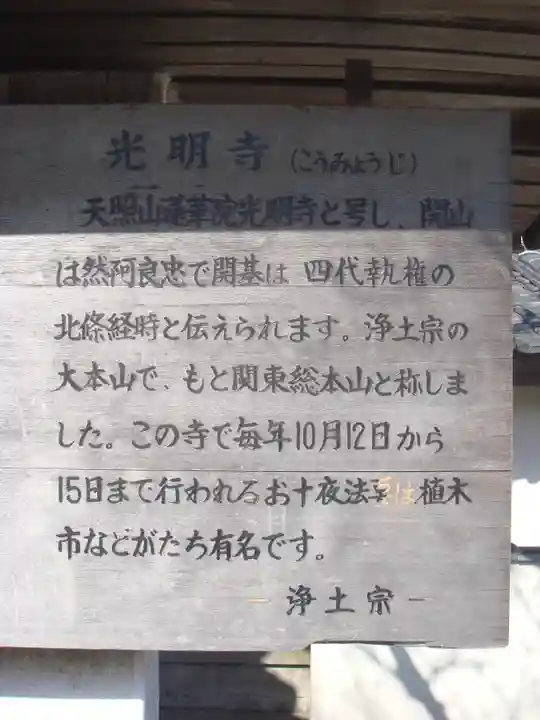 光明寺(こうみょうじ)
天照山蓮華院光明寺と号し、開山
は然阿良忠で開基は 四代執権の
北條経時と伝えられます。浄土宗の
大本山で、もと関東総本山と称しま
した。この寺で毎年10月12日から
15日まで行われるお十夜法要は植木
市などがたち有名です。
－浄土宗－